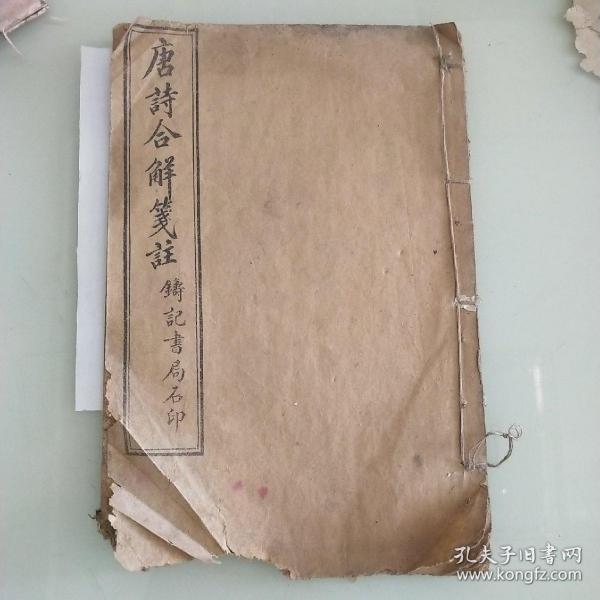 唐詩合解箋註
鑄記書局石印
孔夫子旧书网
www.kongfz.com